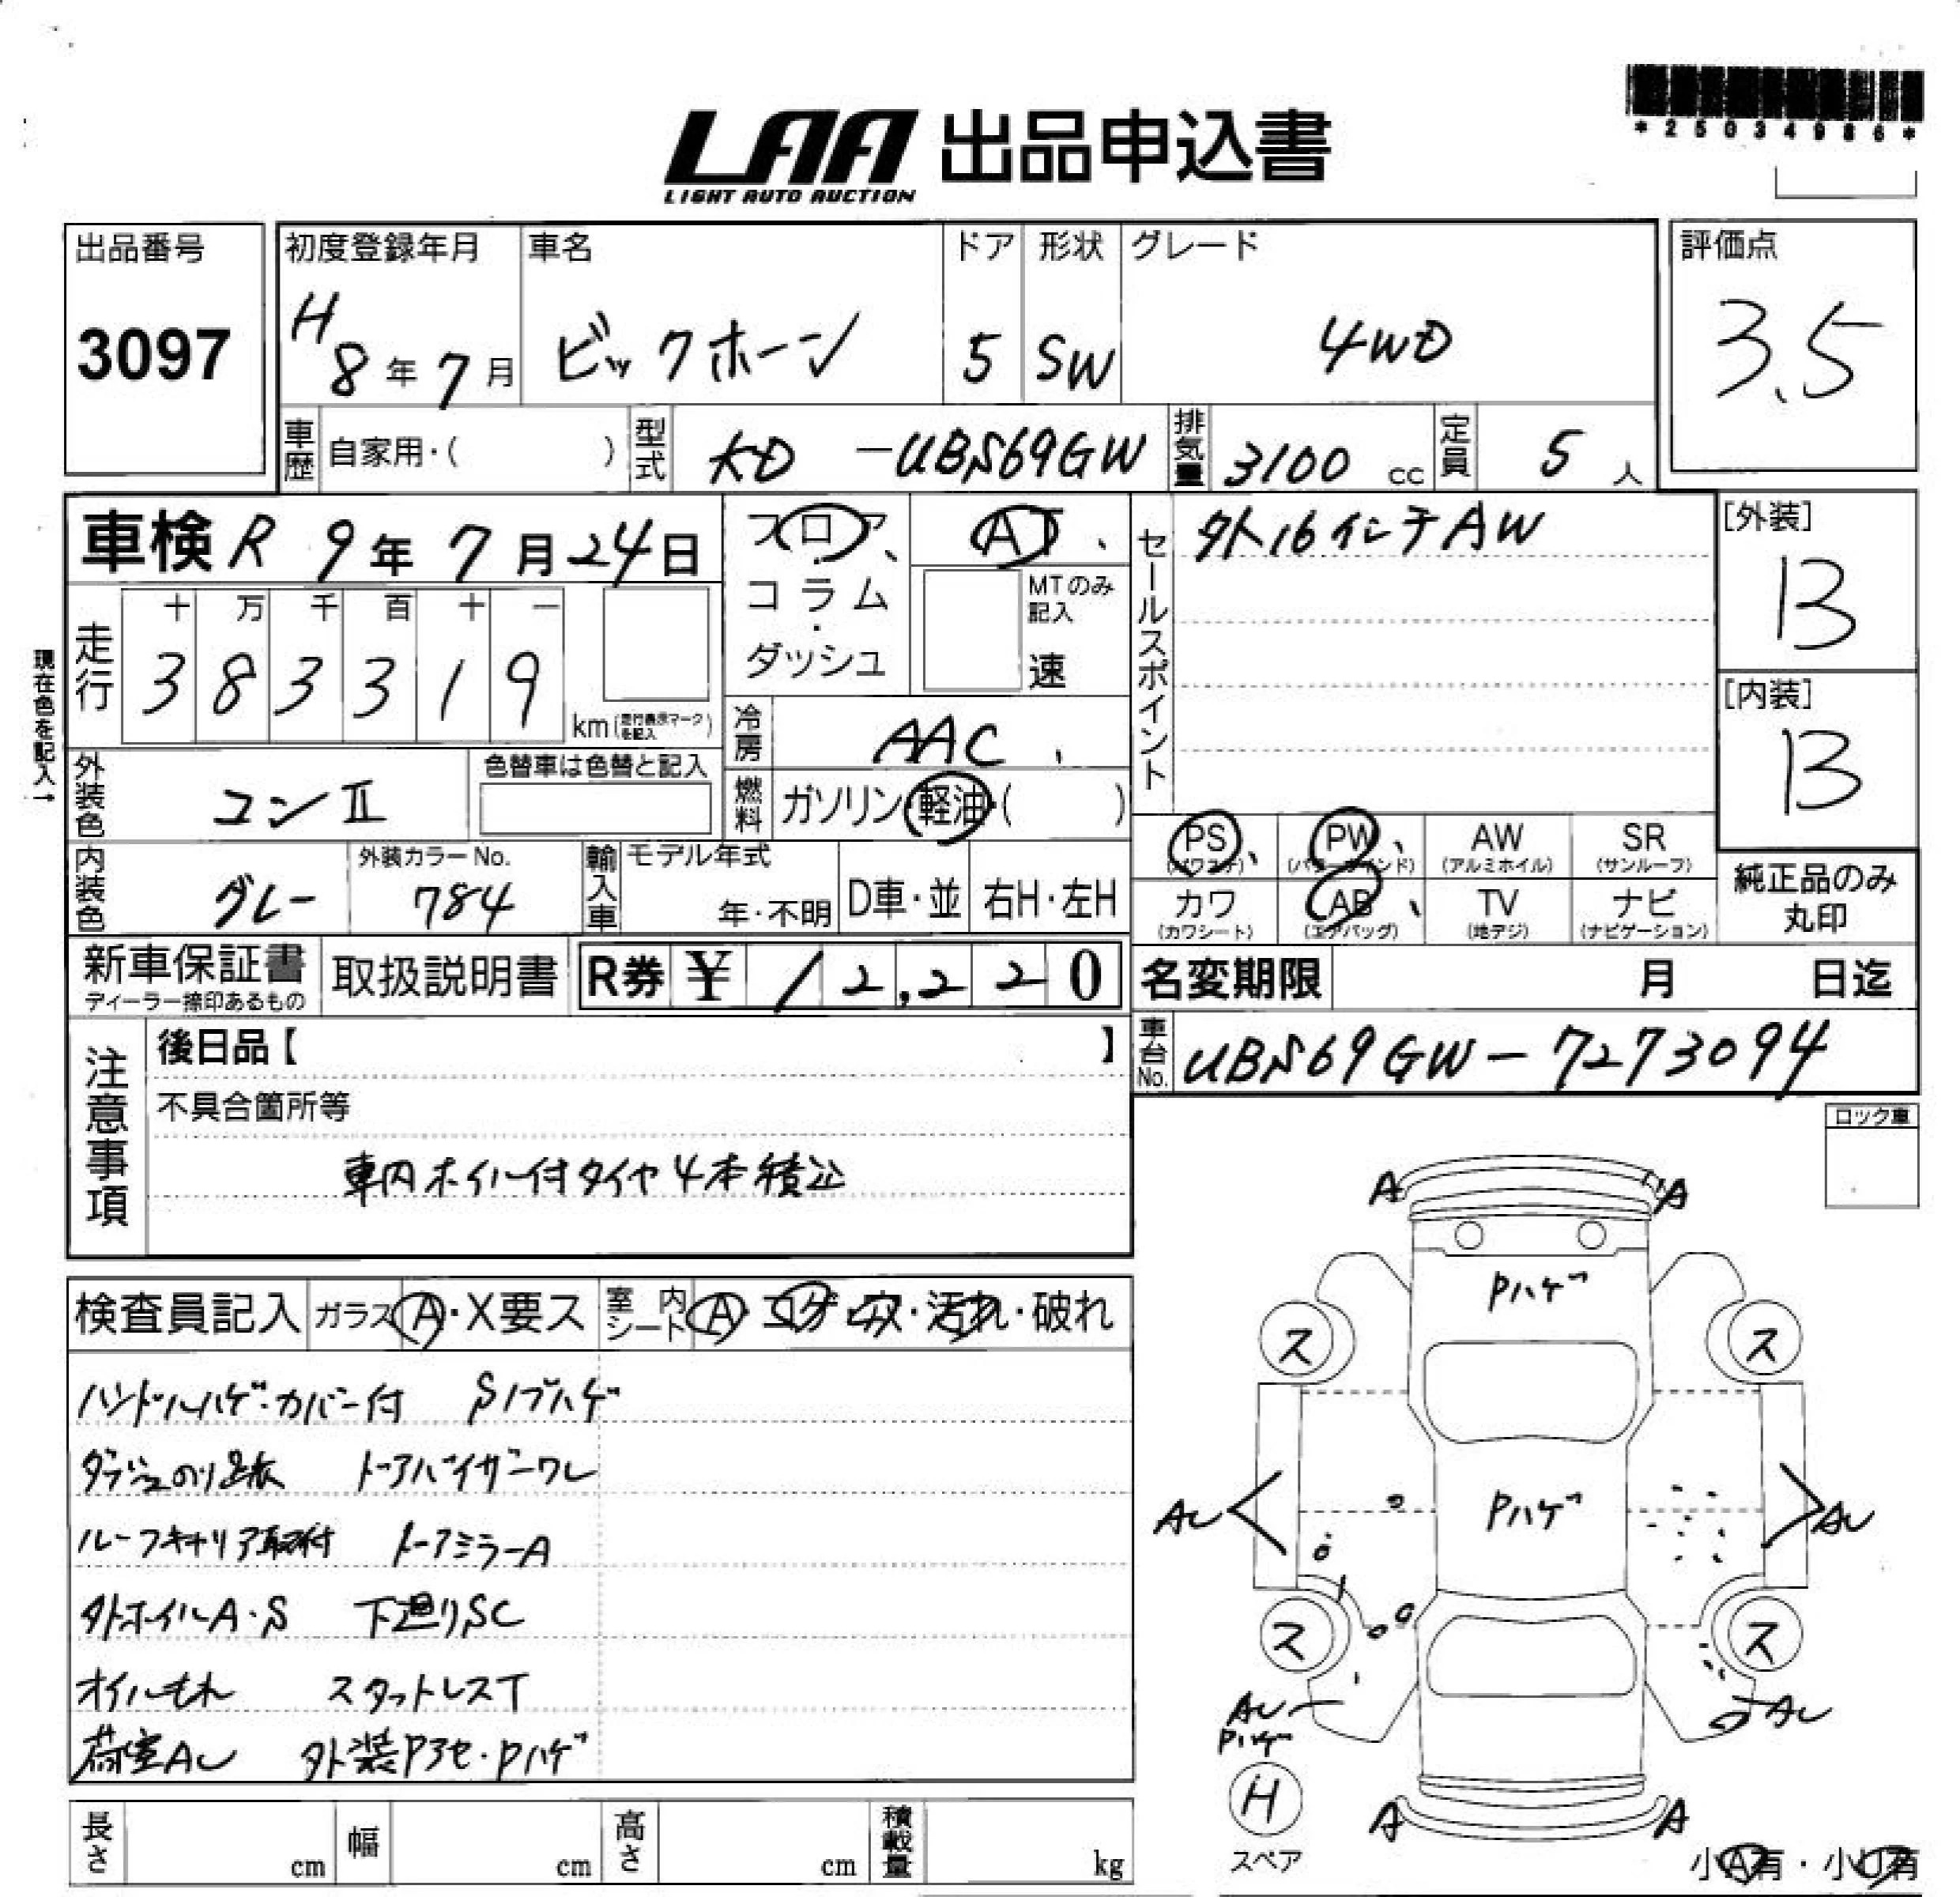 *25034986*
LAA 出品申込書
LIGHT AUTO AUCTION
出品番号
3097
初度登録年月
H 8年 7月
車名
ビックホーン
ドア
5
形状
SW
グレード
4WD
評価点
3.5
車歴 自家用・( )
型式 KD -UBS69GW
排気量 3100 cc
定員 5 人
車検 R 9年 7月 24日
フロア、
コラム
ダッシュ
AT、
MTのみ
記入
速
セールスポイント
外16インチAW
[外装]
B
[内装]
B
純正品のみ
丸印
現在色を記入→
走行
十 万 千 百 十 一
3 8 3 3 1 9
km(走行表示マークを記入)
冷房 AAC、
燃料 ガソリン・軽油・( )
外装色 コンⅡ
色替車は色替と記入
内装色 グレー
外装カラーNo.
784
輸入車
モデル年式
年・不明
D車・並
右H・左H
PS、
(パワステ)
PW、
(パワーウインド)
AW
(アルミホイル)
SR
(サンルーフ)
カワ
(カワシート)
AB、
(エアバッグ)
TV
(地デジ)
ナビ
(ナビゲーション)
新車保証書
ディーラー捺印あるもの
取扱説明書
R券 ¥ 12,220
名変期限 月 日迄
車台No. UBS69GW-7273094
注意事項
後日品【 】
不具合箇所等
車内ホイル付タイヤ4本積込
ロック車
検査員記入 ガラス A・X要ス 室内シート A・コゲ・穴・汚れ・破れ
ハンドルハゲ・カバー付 Sノブハゲ
ダッシュのり跡 ドアバイザーワレ
ルーフキャリア取付 ドアミラーA
外ホイルA・S 下廻りSC
オイルもれ スタットレスT
荷室AU 外装Pアセ・Pハゲ
長さ cm
幅 cm
高さ cm
積載量 kg
A A
Pハゲ
ス ス
AU Pハゲ AU
ス ス
AU
Pハゲ
AU
H
スペア
A A
小A有・小U有